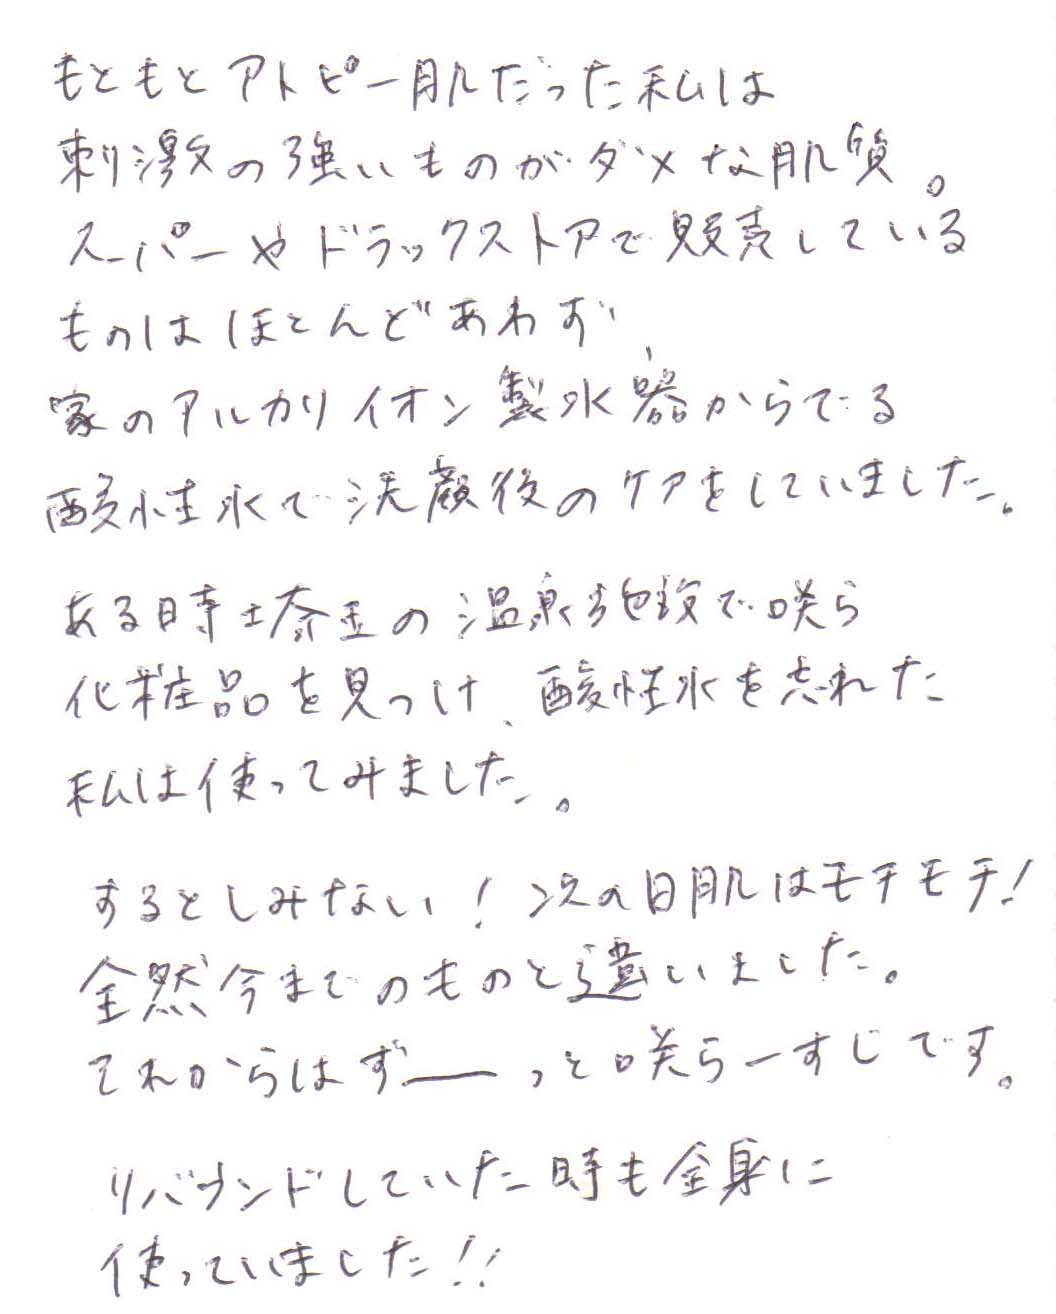 もともとアトピー肌だった私は
刺激の強いものがダメな肌質。
スーパーやドラックストアで販売している
ものはほとんどあわず、
家のアルカリイオン製水器からでる
酸性水で洗顔後のケアをしていました。
ある時埼玉の温泉施設で咲ら
化粧品を見つけ、酸性水を忘れた
私は使ってみました。
するとしみない！次の日肌はモチモチ！
全然今までのものと違いました。
それからはずーっと咲ら一すじです。
リバウンドしていた時も全身に
使っていました!!